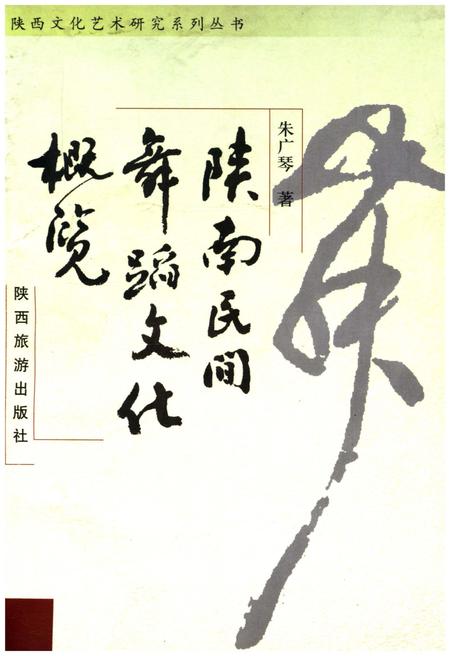 陕西文化艺术研究系列丛书
朱广琴 著
陕南民间
舞蹈文化
概览
陕西旅游出版社
舞